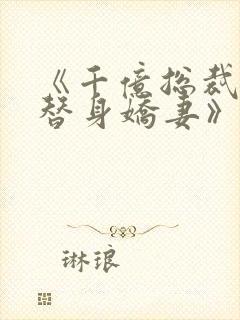 《千億总裁
替身嬌妻》
琳琅